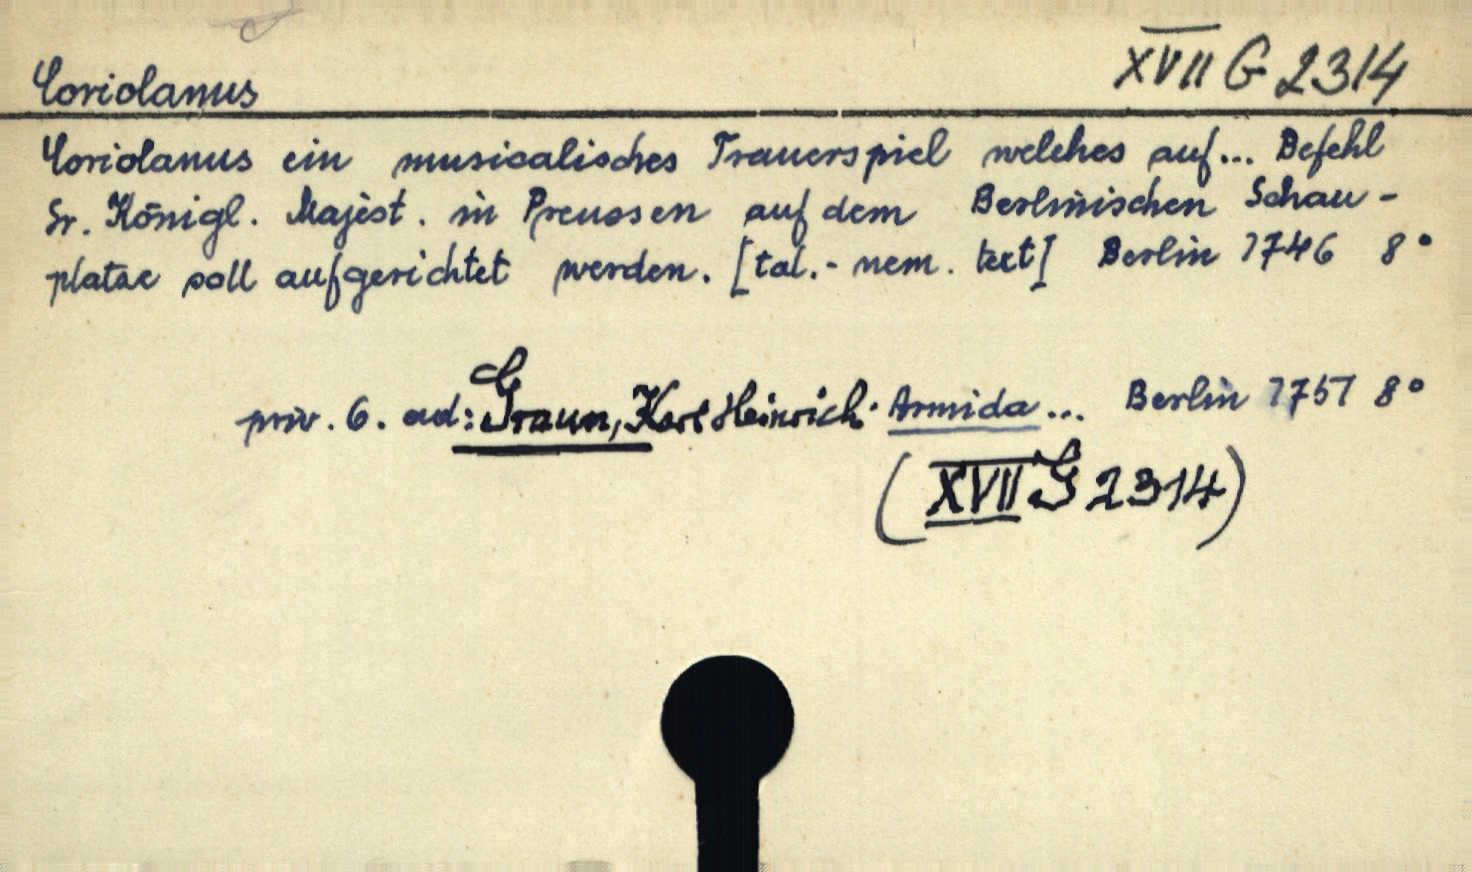 Coriolanus XVII G 2314
Coriolanus ein musicalisches Trauerspiel welches auf... Befehl
Sr. Königl. Majest. in Preussen auf dem Berlinischen Schau-
platze soll aufgerichtet werden. [tal.-nem. text] Berlin 1746 8°
priv. 6. ad: Graun, Karl Heinrich. Armida... Berlin 1751 8°
(XVII G 2314)